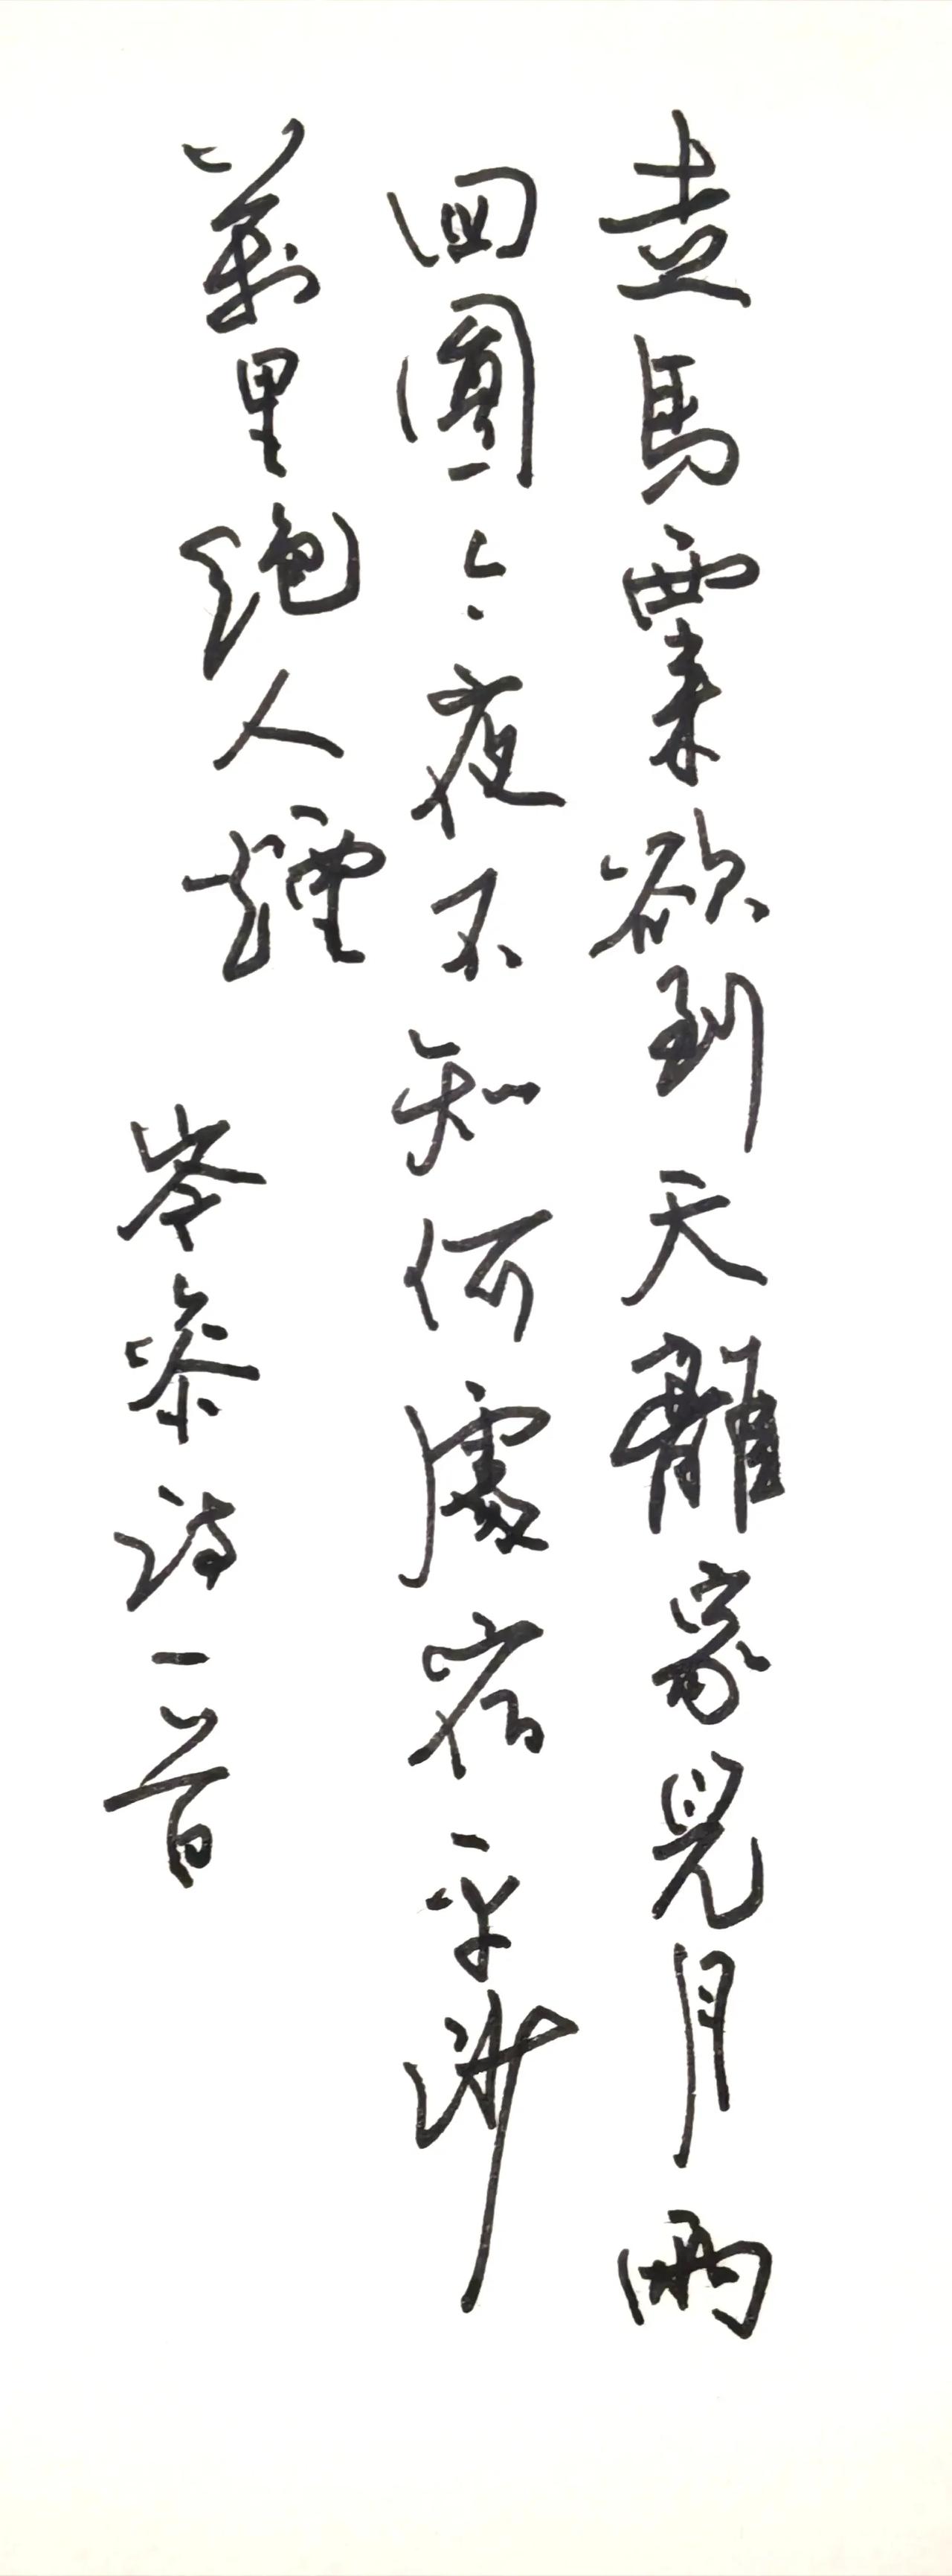 走馬西來欲到天辭家見月兩
回圓今夜不知何處宿平沙
萬里絕人煙
岑參詩一首